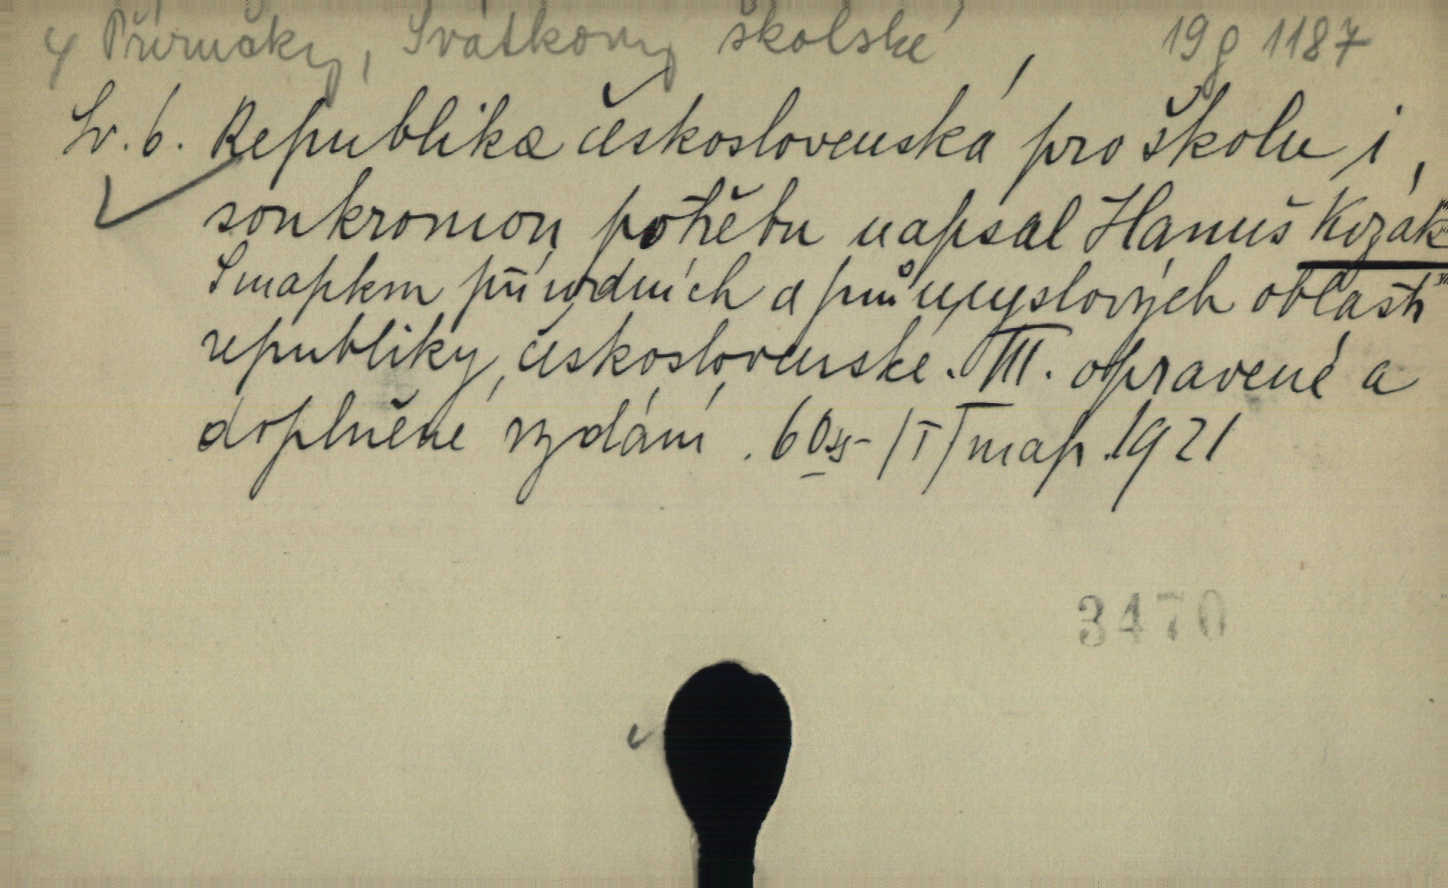 Příručky, Svátkovy školské 19 g 1187
Sv. 6. Republika československá pro školu i
soukromou potřebu napsal Hanuš Kozák
S mapkou přírodních a průmyslových oblastí
republiky československé. III. opravené a
doplněné vydání. 60 s - /I/ map. 1921
3470